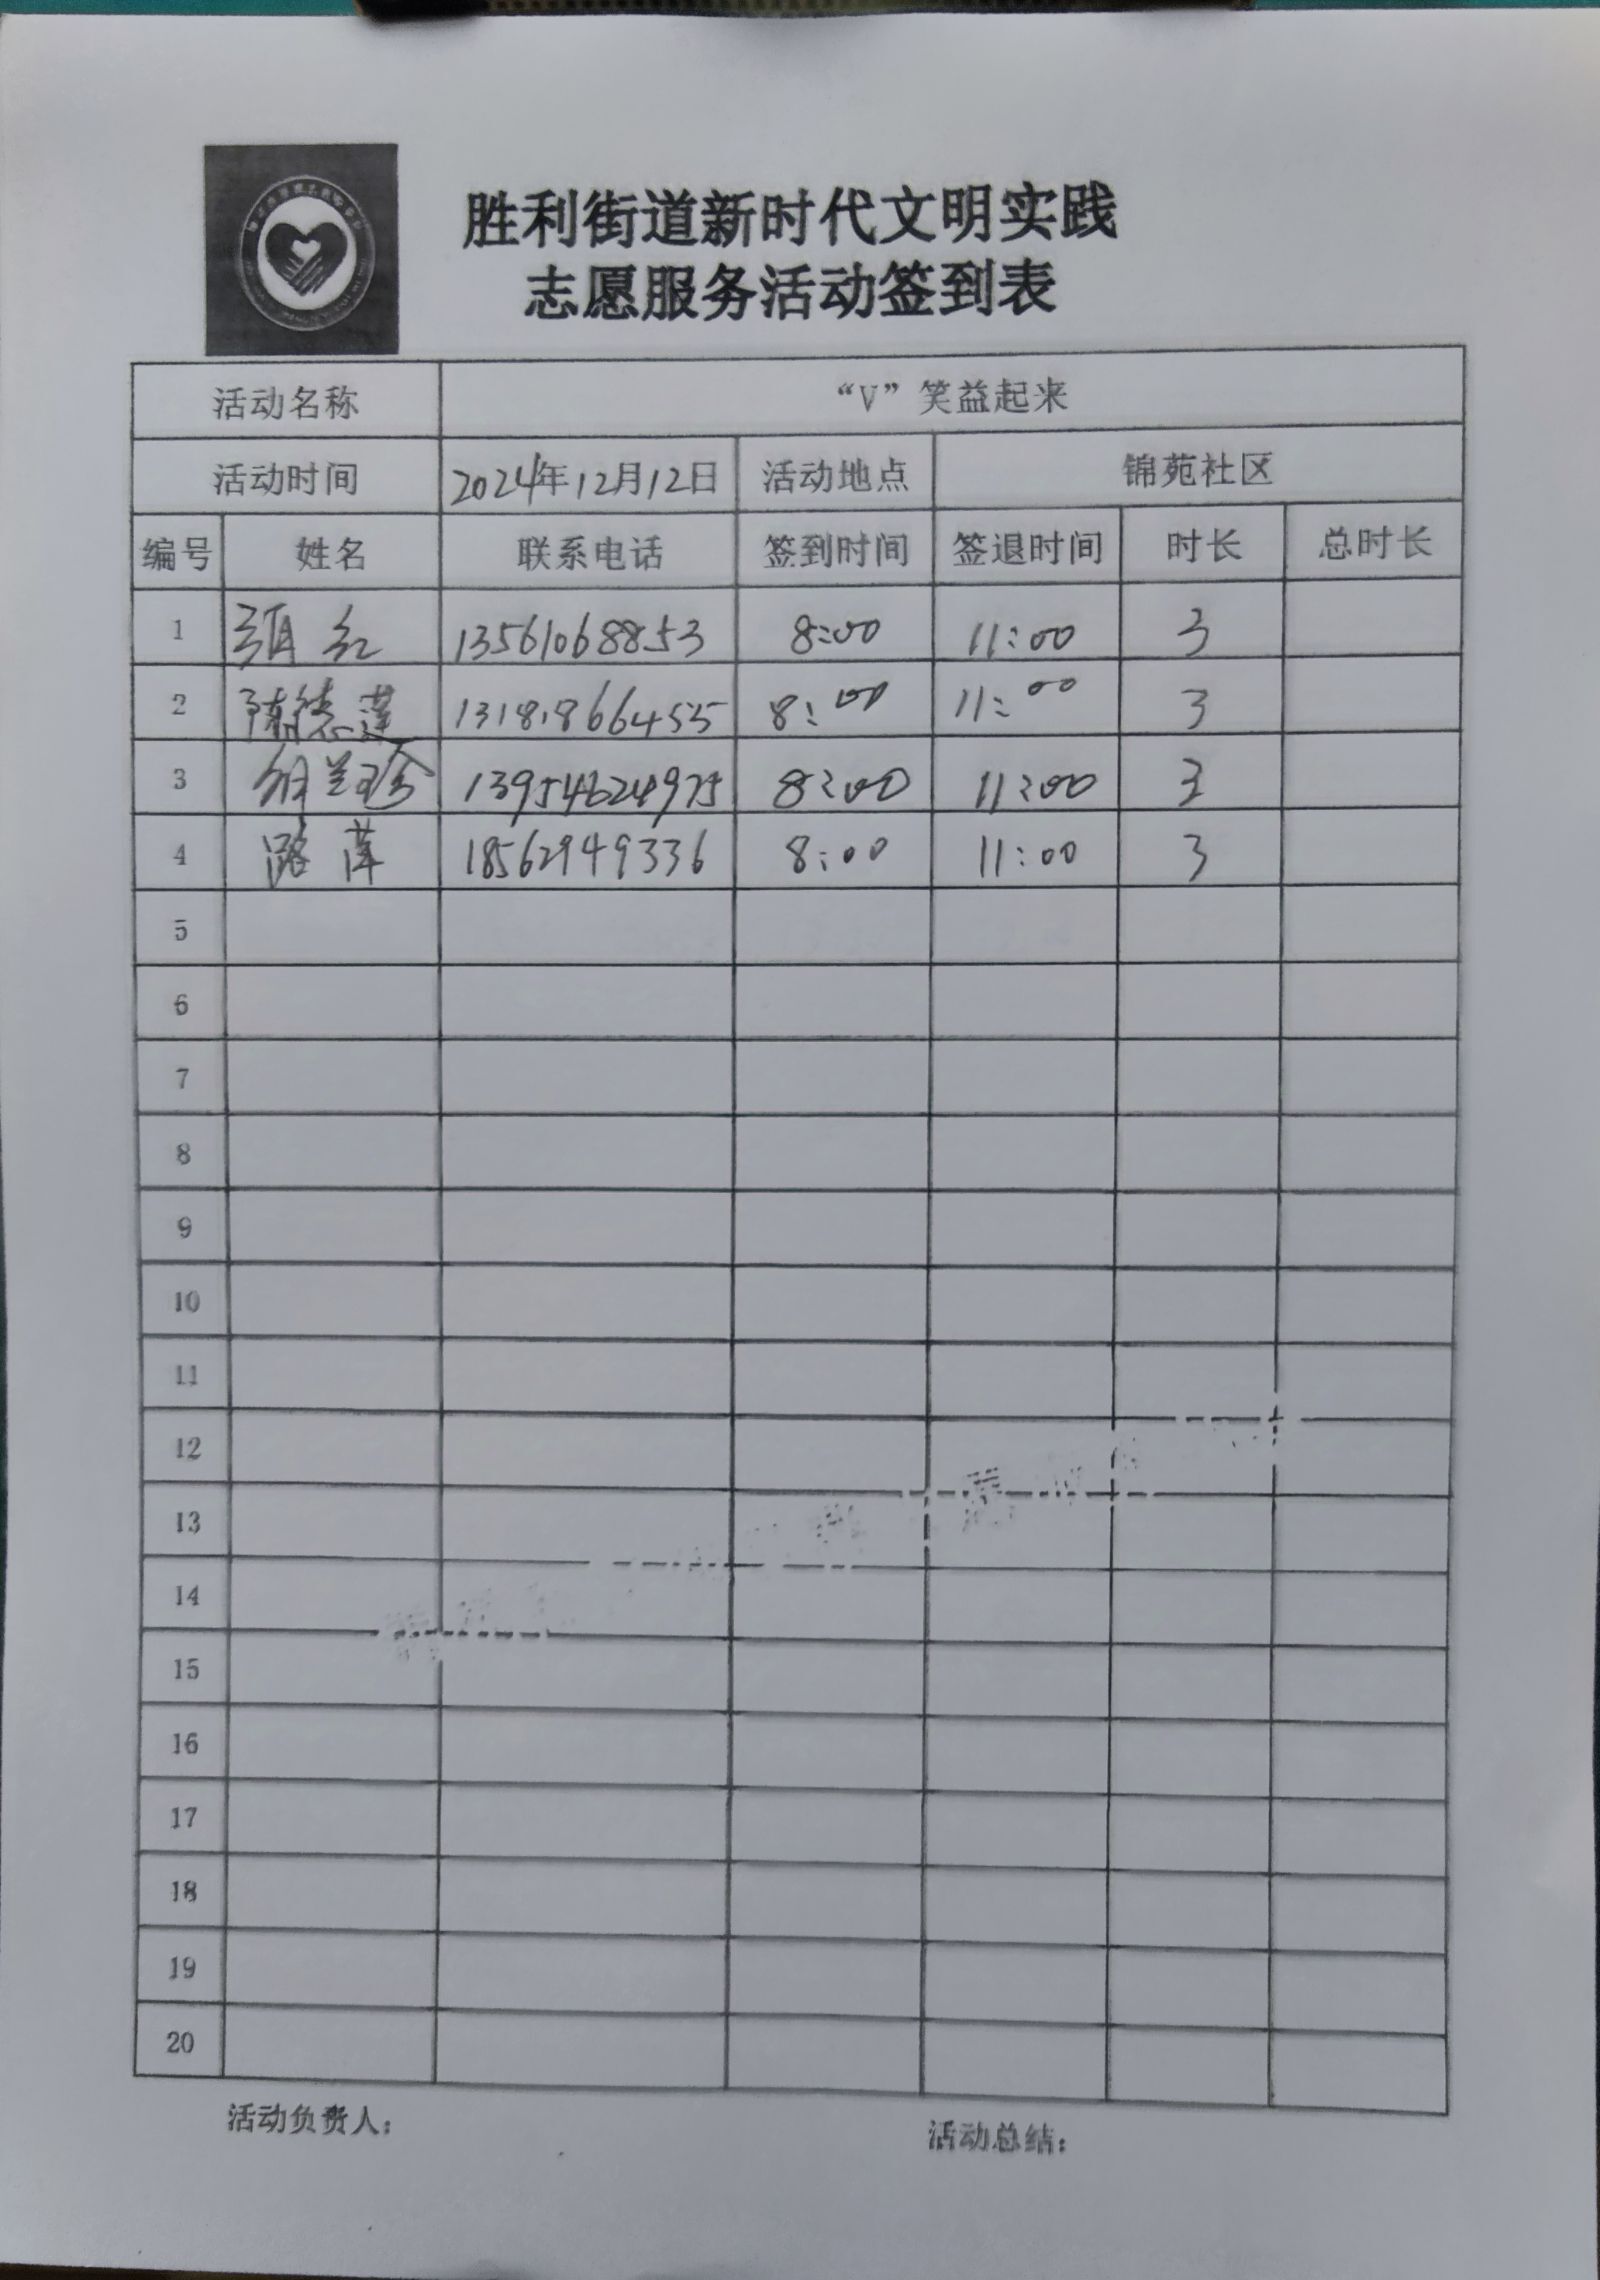 胜利街道新时代文明实践
志愿服务活动签到表
活动名称 “V”笑益起来
活动时间 2024年12月12日 活动地点 锦苑社区
编号 姓名 联系电话 签到时间 签退时间 时长 总时长
1 红 13561068853 8:00 11:00 3
2 陈德莲 13181866455 8:00 11:00 3
3 兰珍 13954624975 8:00 11:00 3
4 潞萍 18562949336 8:00 11:00 3
5
6
7
8
9
10
11
12
13
14
15
16
17
18
19
20
活动负责人: 活动总结: